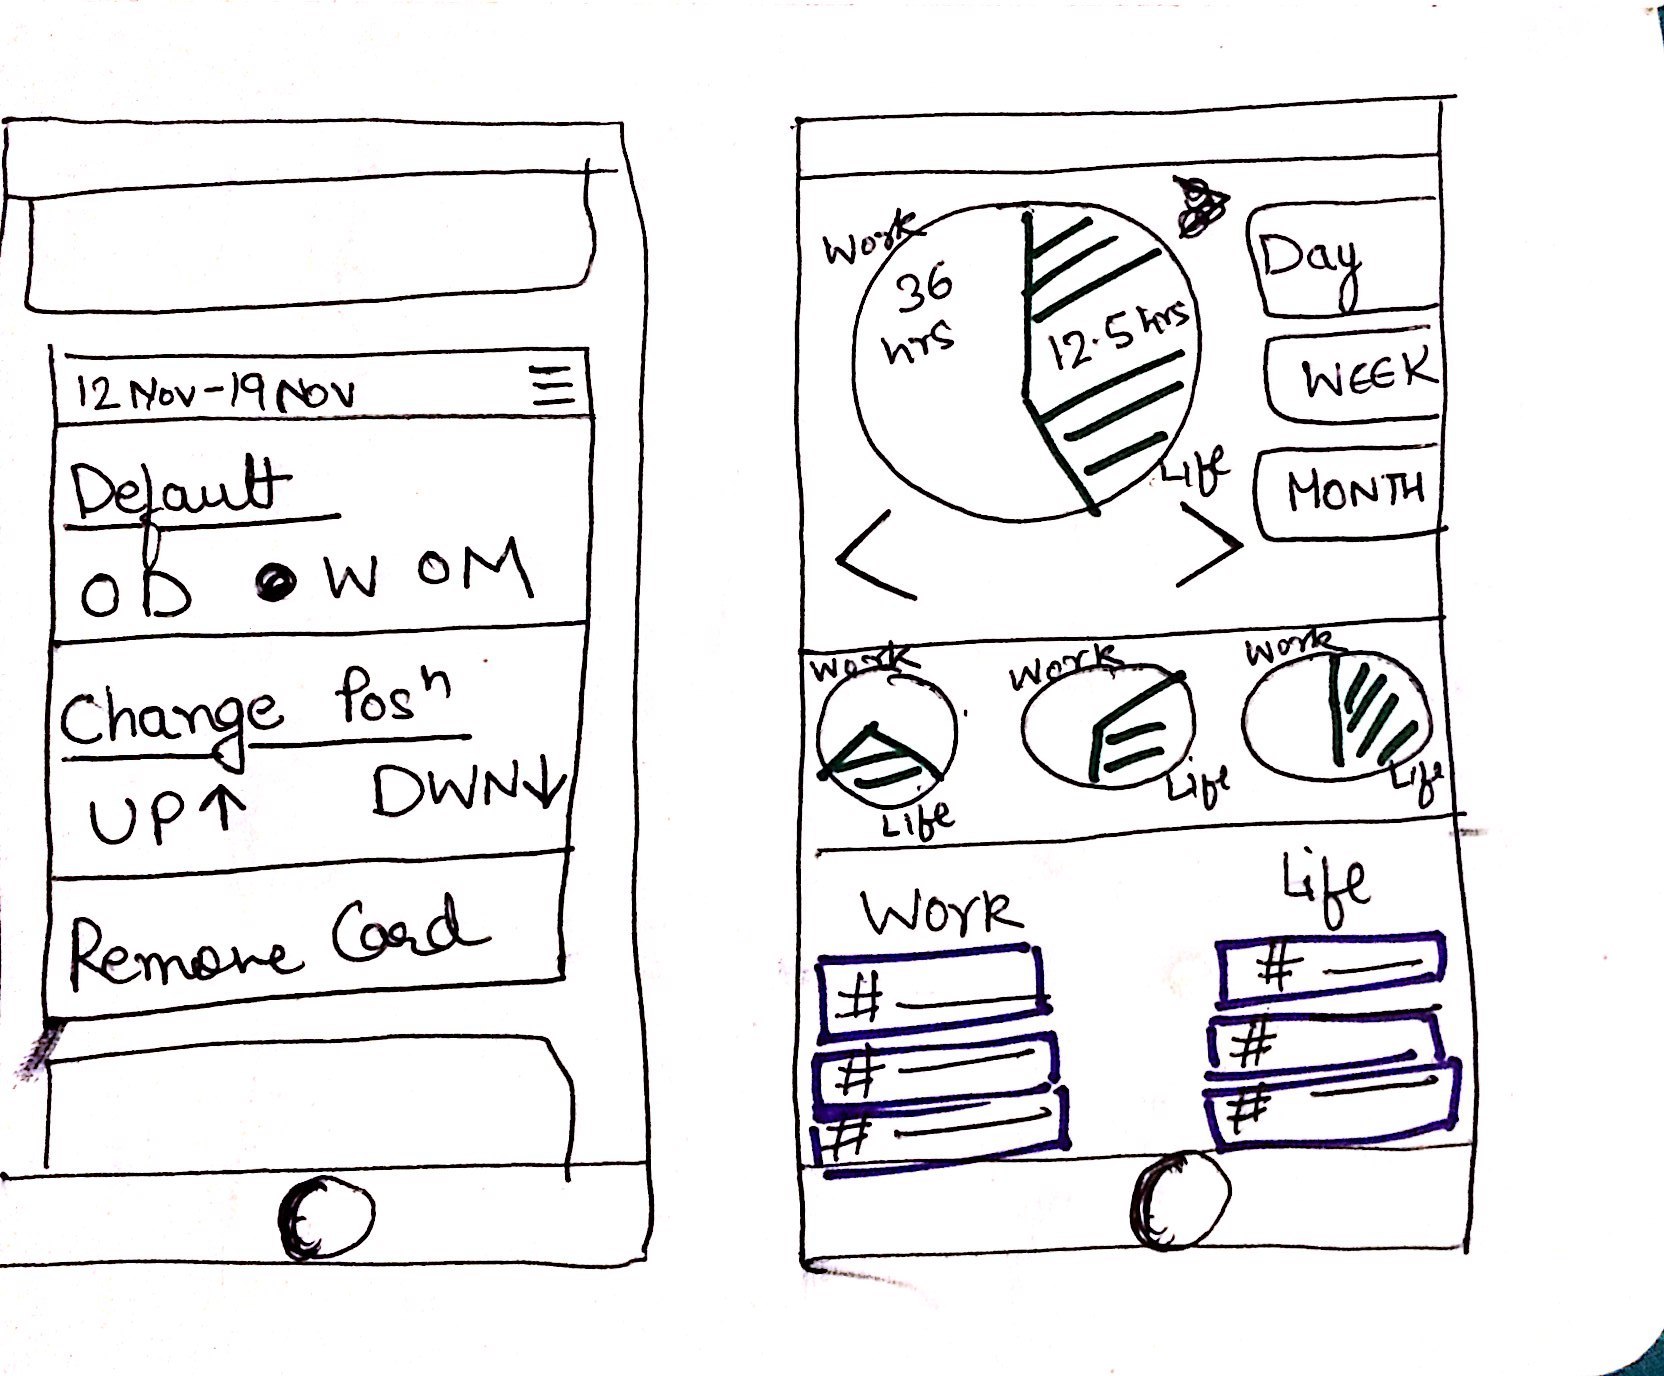 12 Nov-19 Nov
Default
O D ● W O M
Change Posⁿ
UP↑ DWN↓
Remove Card
Work
36
hrs
12.5 hrs
Life
Day
WEEK
MONTH
Work Work Work
Life Life Life
Work Life
# #
# #
# #